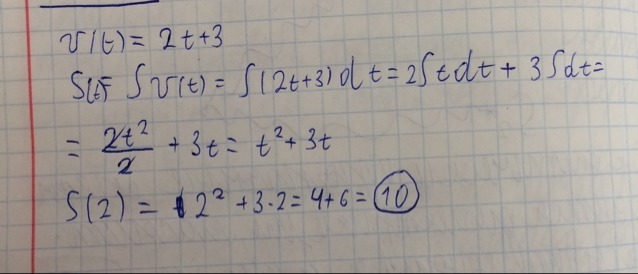 v(t) = 2t+3
S(t)= ∫v(t) = ∫(2t+3)dt = 2∫tdt + 3∫dt=
= 2t²/2 + 3t = t² + 3t
S(2) = 2² + 3·2 = 4+6 = 10